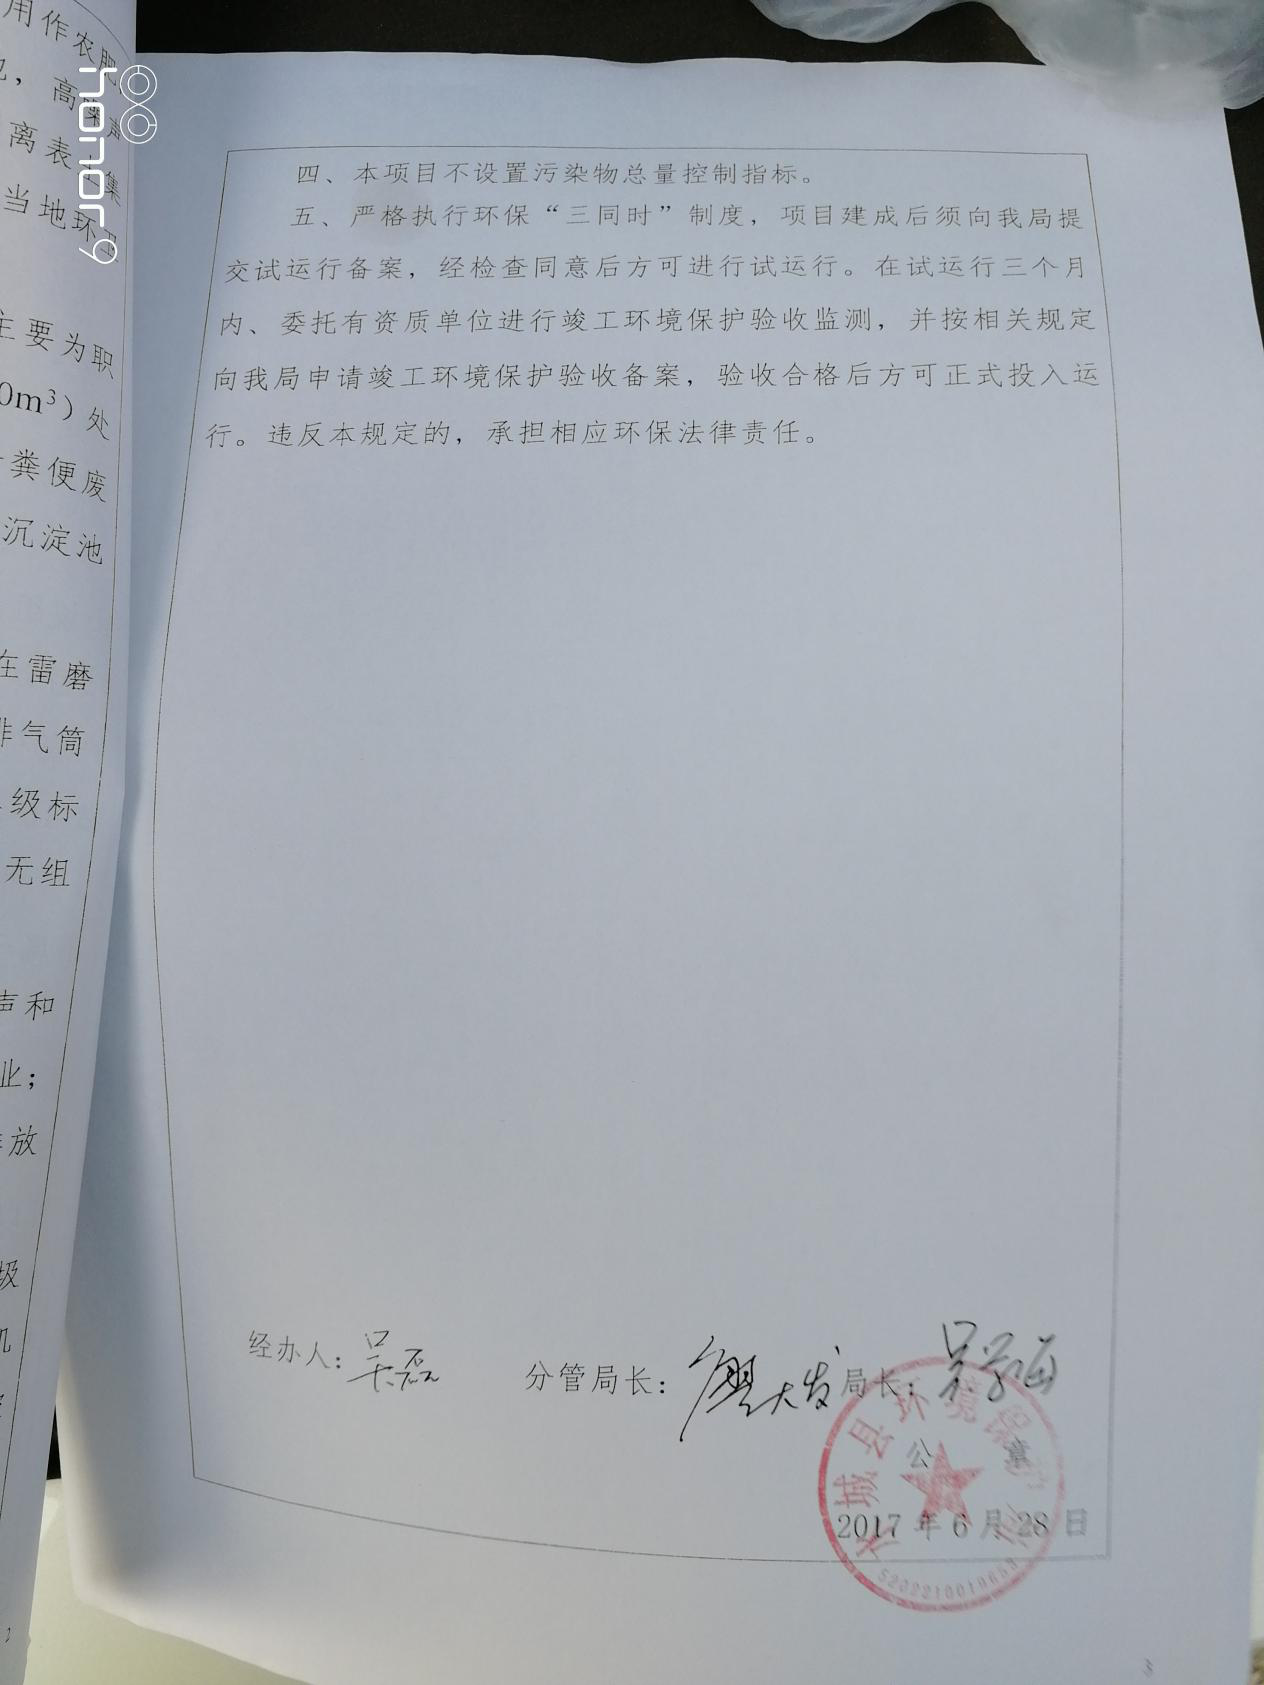 用作农肥
高噪声
离表
集
当地环卫
主要为职
0m³）处
粪便废
沉淀池
在雷磨
排气筒
级标
无组
声和
业；
放
级
机
2
honor9
四、本项目不设置污染物总量控制指标。
五、严格执行环保“三同时”制度，项目建成后须向我局提
交试运行备案，经检查同意后方可进行试运行。在试运行三个月
内、委托有资质单位进行竣工环境保护验收监测，并按相关规定
向我局申请竣工环境保护验收备案，验收合格后方可正式投入运
行。违反本规定的，承担相应环保法律责任。
经办人：吴磊 分管局长：大发 局长：吴学
公 章
2017 年 6 月 28 日
城县环境
3